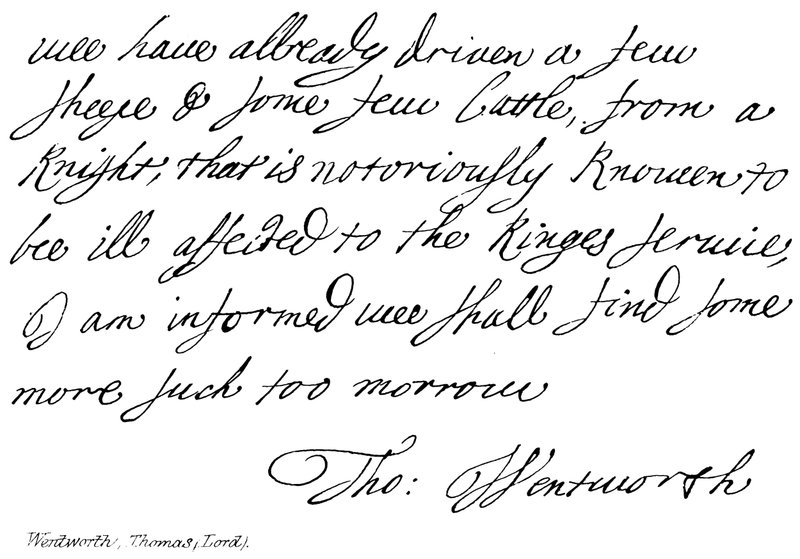 wee haue allready driven a few
sheepe & some few Cattle, from a
Knight, that is notoriously Knowen to
bee ill affected to the Kinges seruice,
I am informed wee shall find some
more such too morrow
Tho: Wentworth
Wentworth, Thomas, (Lord).